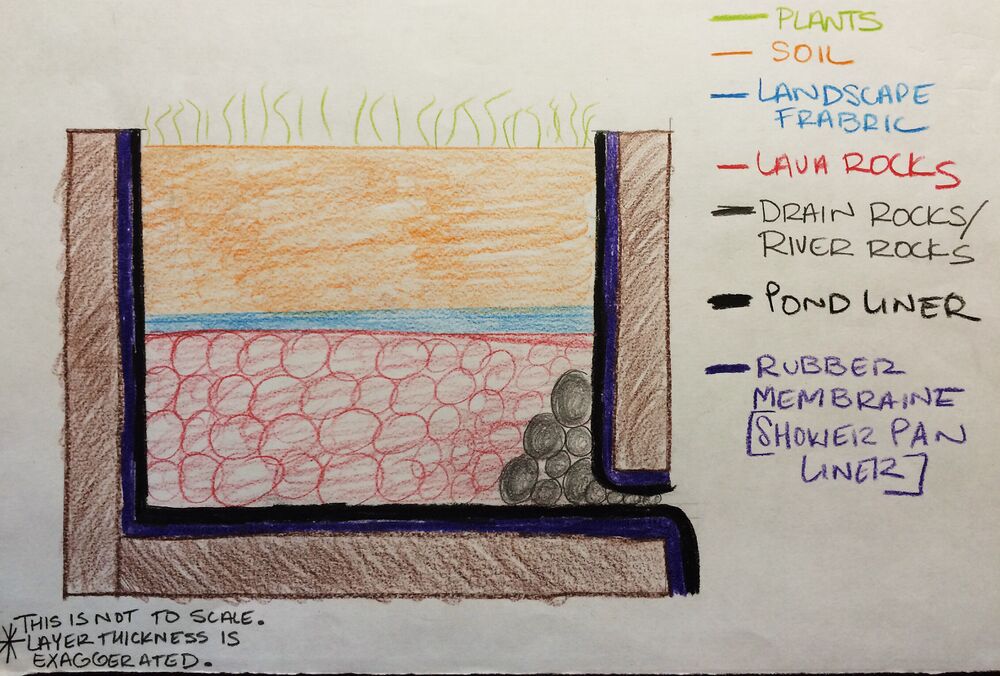 PLANTS
SOIL
LANDSCAPE
FRABRIC
LAVA ROCKS
DRAIN ROCKS/
RIVER ROCKS
POND LINER
RUBBER
MEMBRAINE
[SHOWER PAN
LINER]
THIS IS NOT TO SCALE.
* LAYER THICKNESS IS
EXAGGERATED.